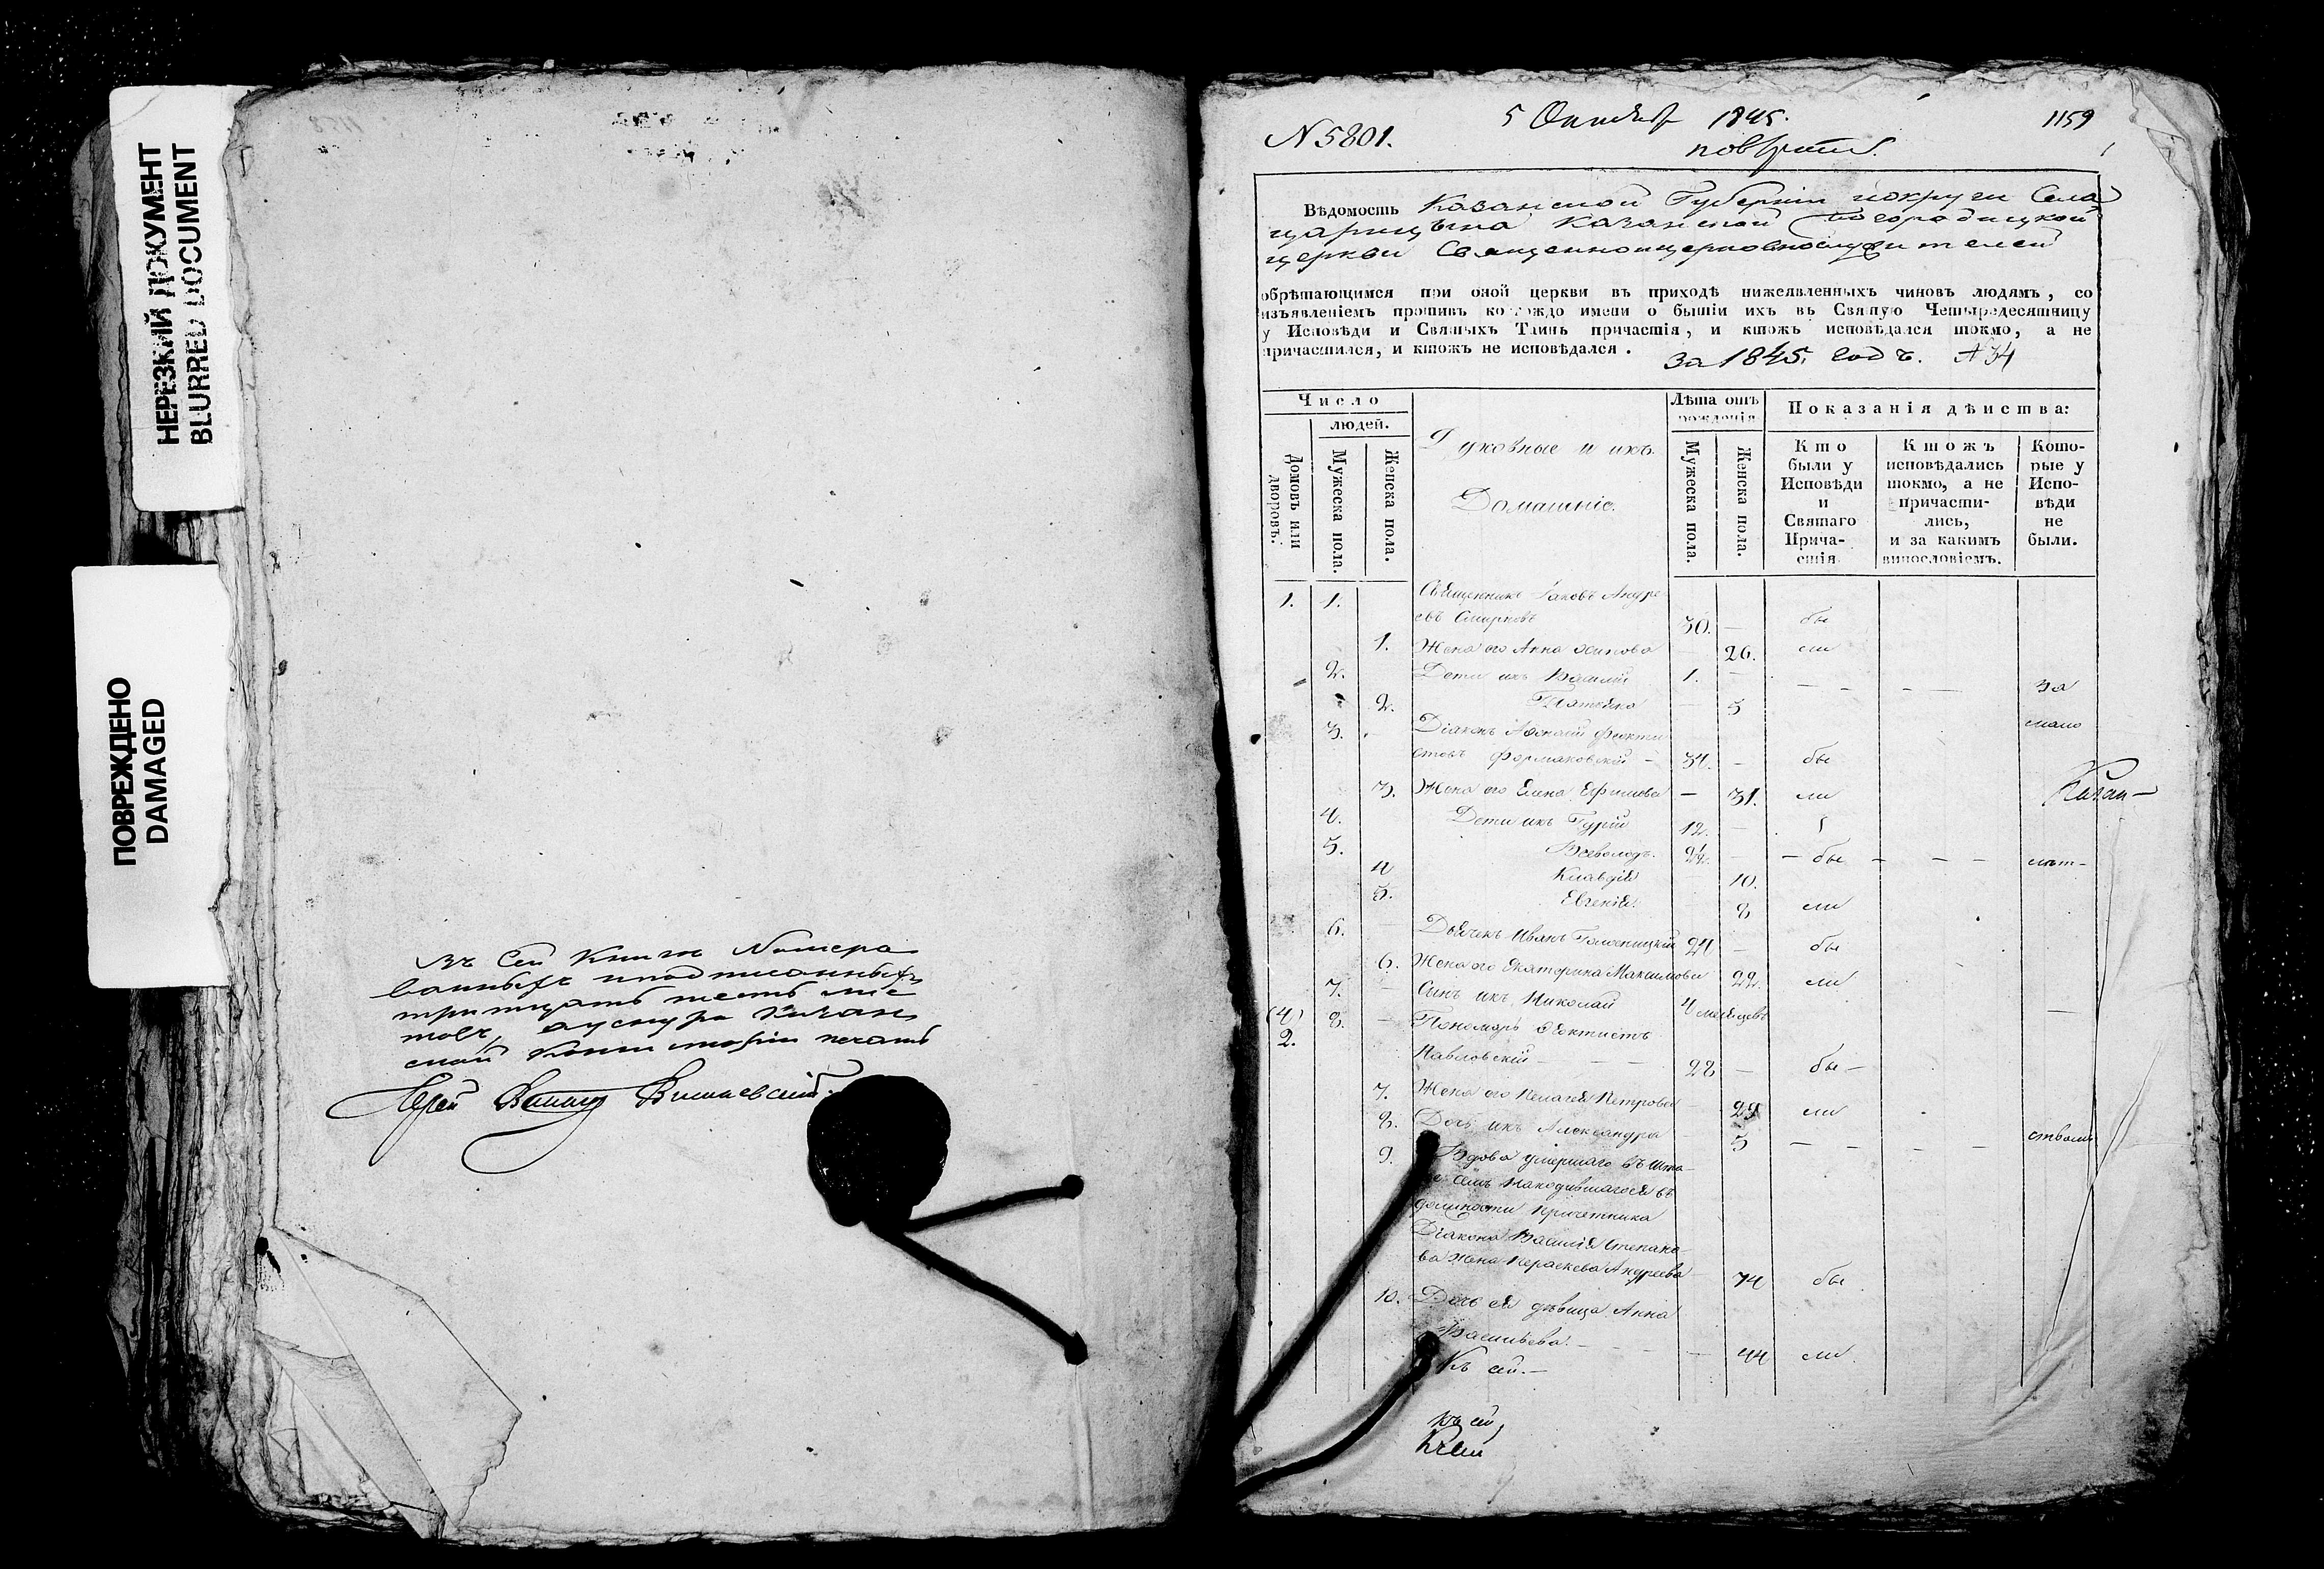 НЕРЕЗКИЙ ДОКУМЕНТ
BLURRED DOCUMENT
ПОВРЕЖДЕНО
DAMAGED
Въ сей книгѣ Нумеро
ванныхъ и подписанныхъ
тритцать шесть лис
товъ, а у снура Казан
ской Консисторіи печать
Іерей Вишневскій
N 5801.
5 Октября 1845.
1159
Вѣдомость Казанской Губерніи и округи Села
Царицына Казанской Богородицкой
церкви Священноцерковнослужителей
обрѣтающимся при оной церкви въ приходѣ нижеявленныхъ чиновъ людямъ, со
изъявленіемъ противъ коегождо имени о бытіи ихъ въ Святую Четыредесятницу
у Исповѣди и Святыхъ Таинъ причастія, и ктожъ исповѣдался токмо, а не
причастился, и ктожъ не исповѣдался.
за 1845. годъ. № 34
Число
людей.
Домовъ или дворовъ.
Мужеска пола.
Женска пола.
Духовные и ихъ
Домашніе.
Лѣта отъ рожденія
Мужеска пола.
Женска пола.
Показанія дѣйства:
Кто были у Исповѣди и Святаго Прича-стія
Ктожъ исповѣдались токмо, а не причасти-лись, и за какимъ винословіемъ.
Кото-рые у Испо-вѣди не были.
1. 1. Священникъ Іаковъ Андре
евъ Смирновъ 30. — бы
1. Жена его Анна Осипова — 26. ли
2. Дети ихъ Василій 1. — — — — — за
2. — 5
мало
3. Діаконъ Афонасій Феокти
стовъ Формаковскій — 34. — бы
3. Жена его Елена Ефимова — 31. ли
Казан—
4. Дети ихъ Гурій 12. —
5. Всеволодъ. — — бы — — — лѣт—
4 Клавдія 10.
5. Евгенія. 8 ли
6. Дьячекъ Иванъ 24 — бы
6. Жена его Екатерина Максимова 22. ли
7. Сынъ их Николай 4 месяцевъ —
(4)
2. 8. — Пономарь Феоктистъ
Павловскій — — — 28 — бы —
7. Жена его Пелагея Петрова 29 ли
8. Дочь ихъ Александра 5 — — — — ствомъ
9. Вдова умершаго въ
находившагося въ
должности причетника
Діакона Василія Степано
ва Жена Параскева Андреева 74 бы
10. Дочь ея дѣвица Анна
Васильева. — — — — 44 ли.
Къ сей.—
къ сей
Къ сей